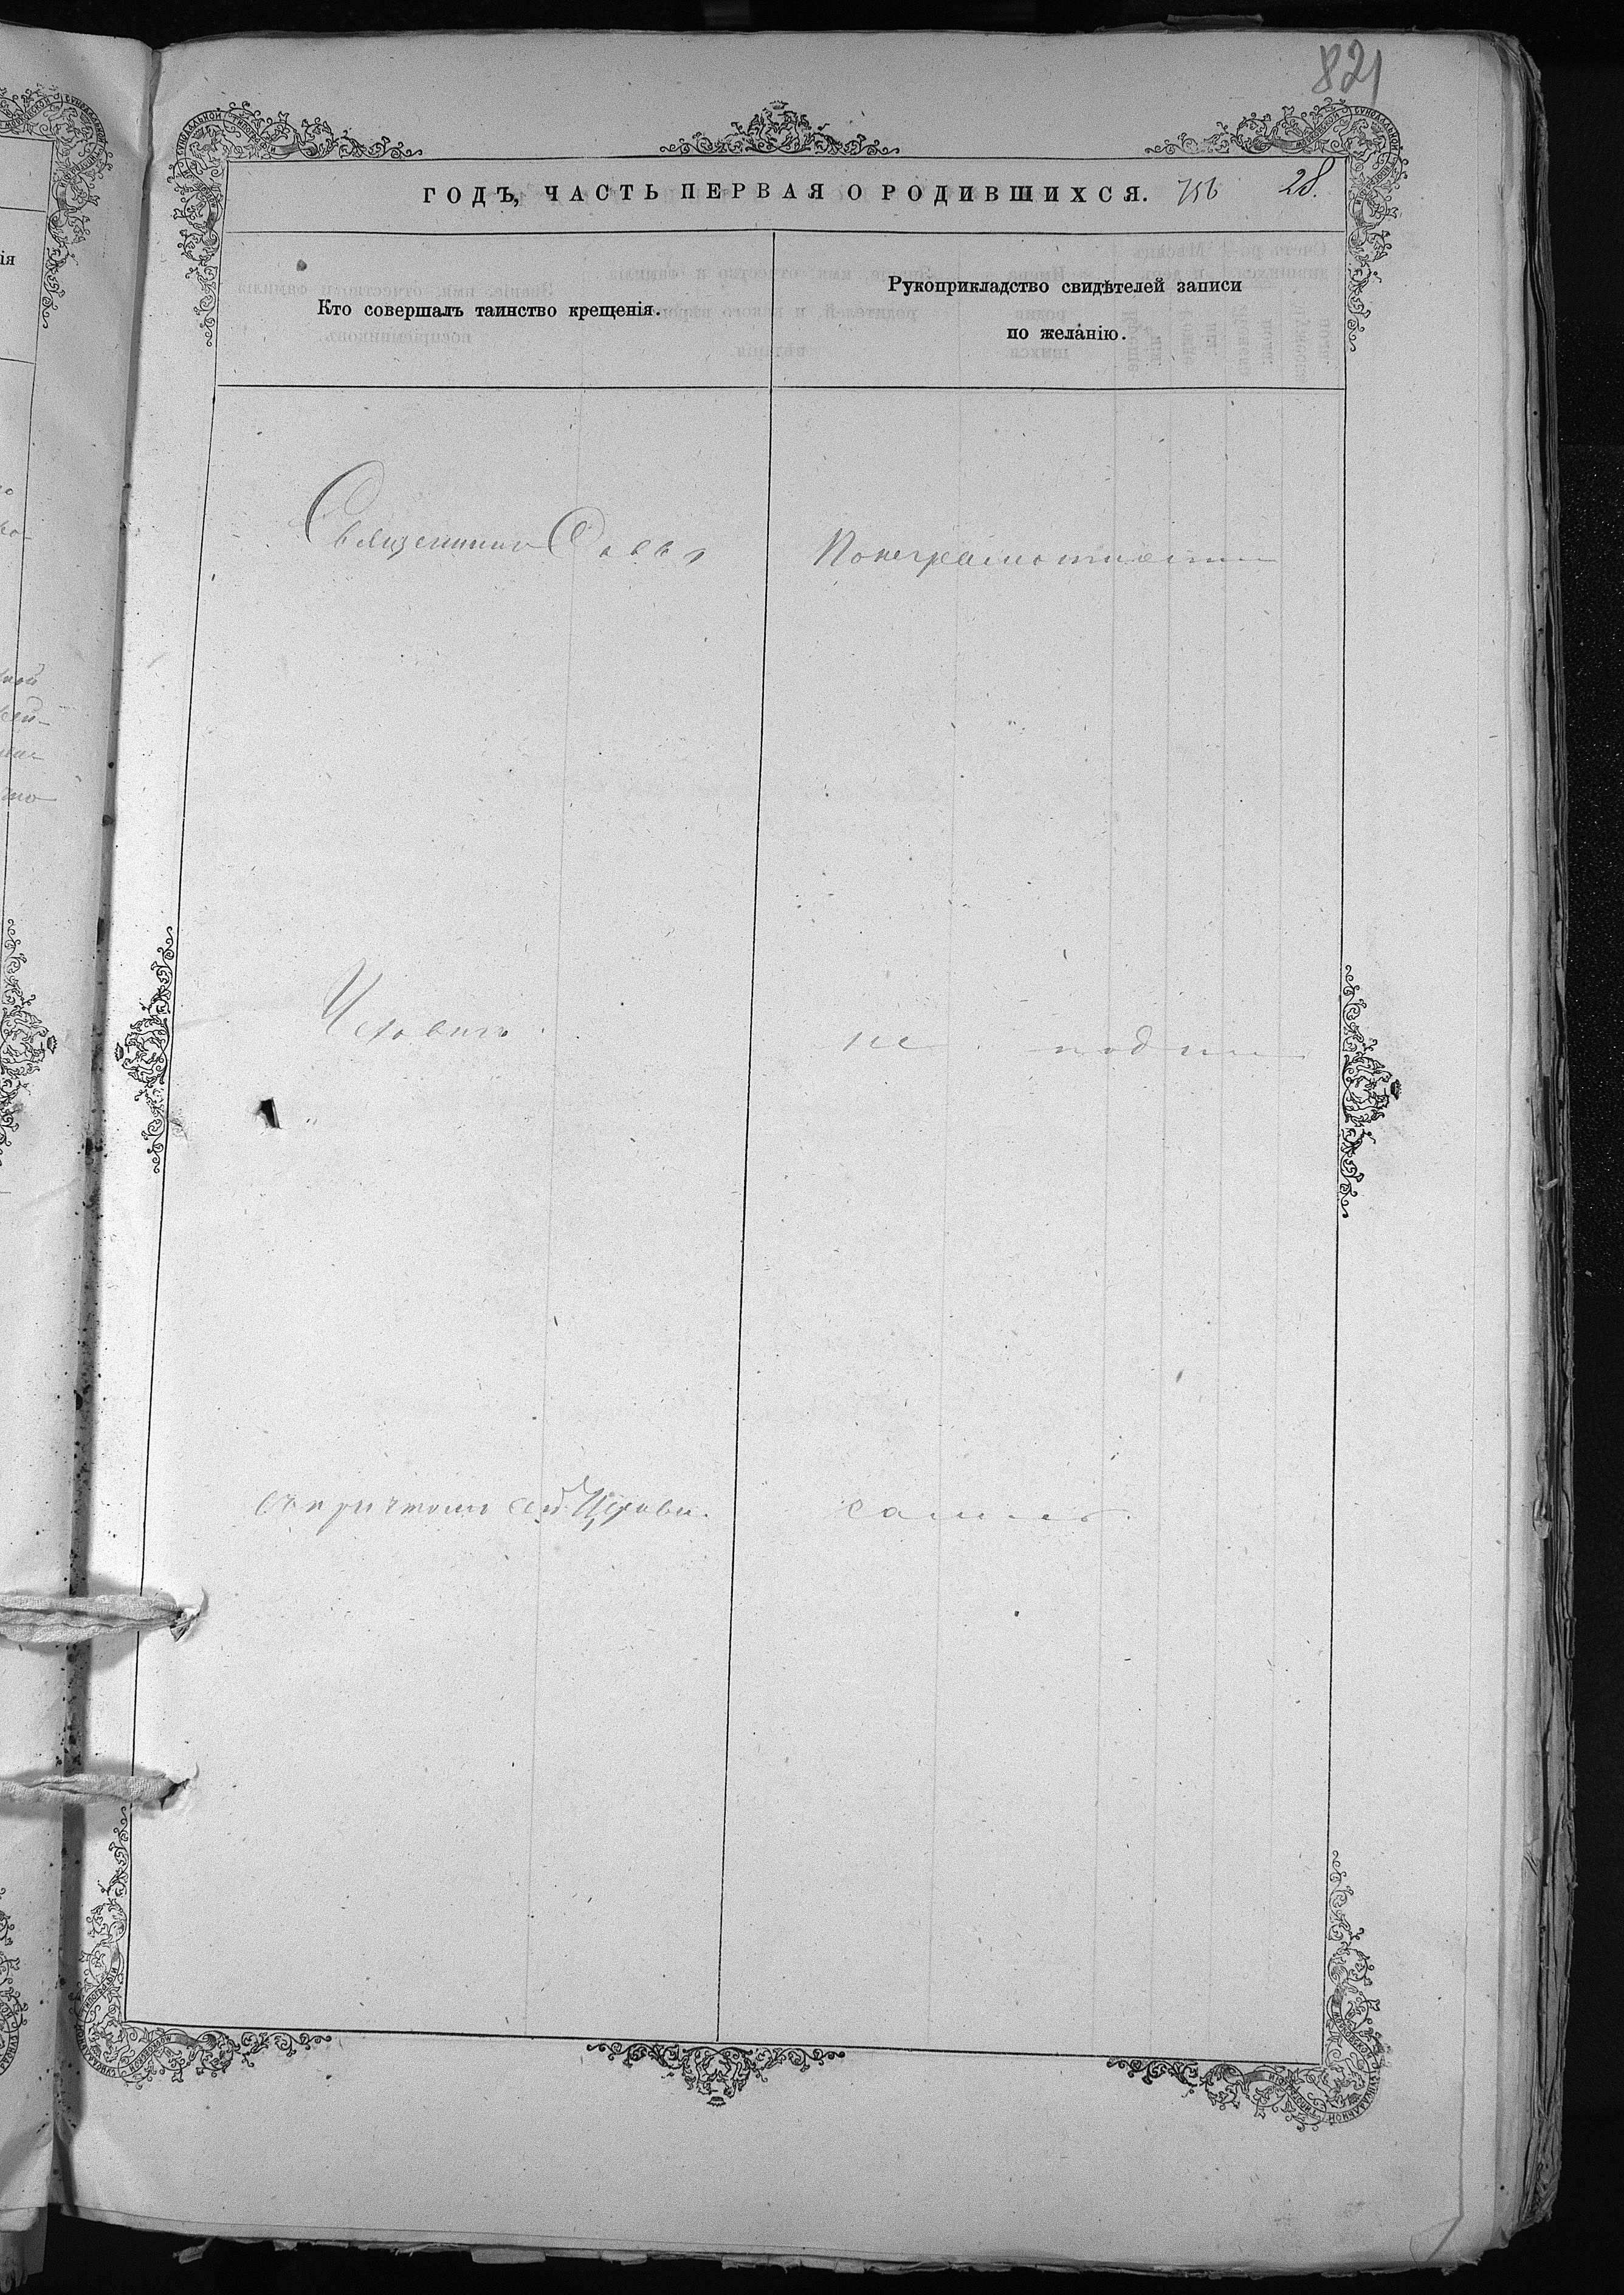 821
ГОДЪ, ЧАСТЬ ПЕРВАЯ О РОДИВШИХСЯ. 756 28.
Кто совершалъ таинство крещенія.
Рукоприкладство свидѣтелей записи
по желанію.
Священникъ Савва
Понеграмотности
не подпи
съ причтомъ сей Церкви.